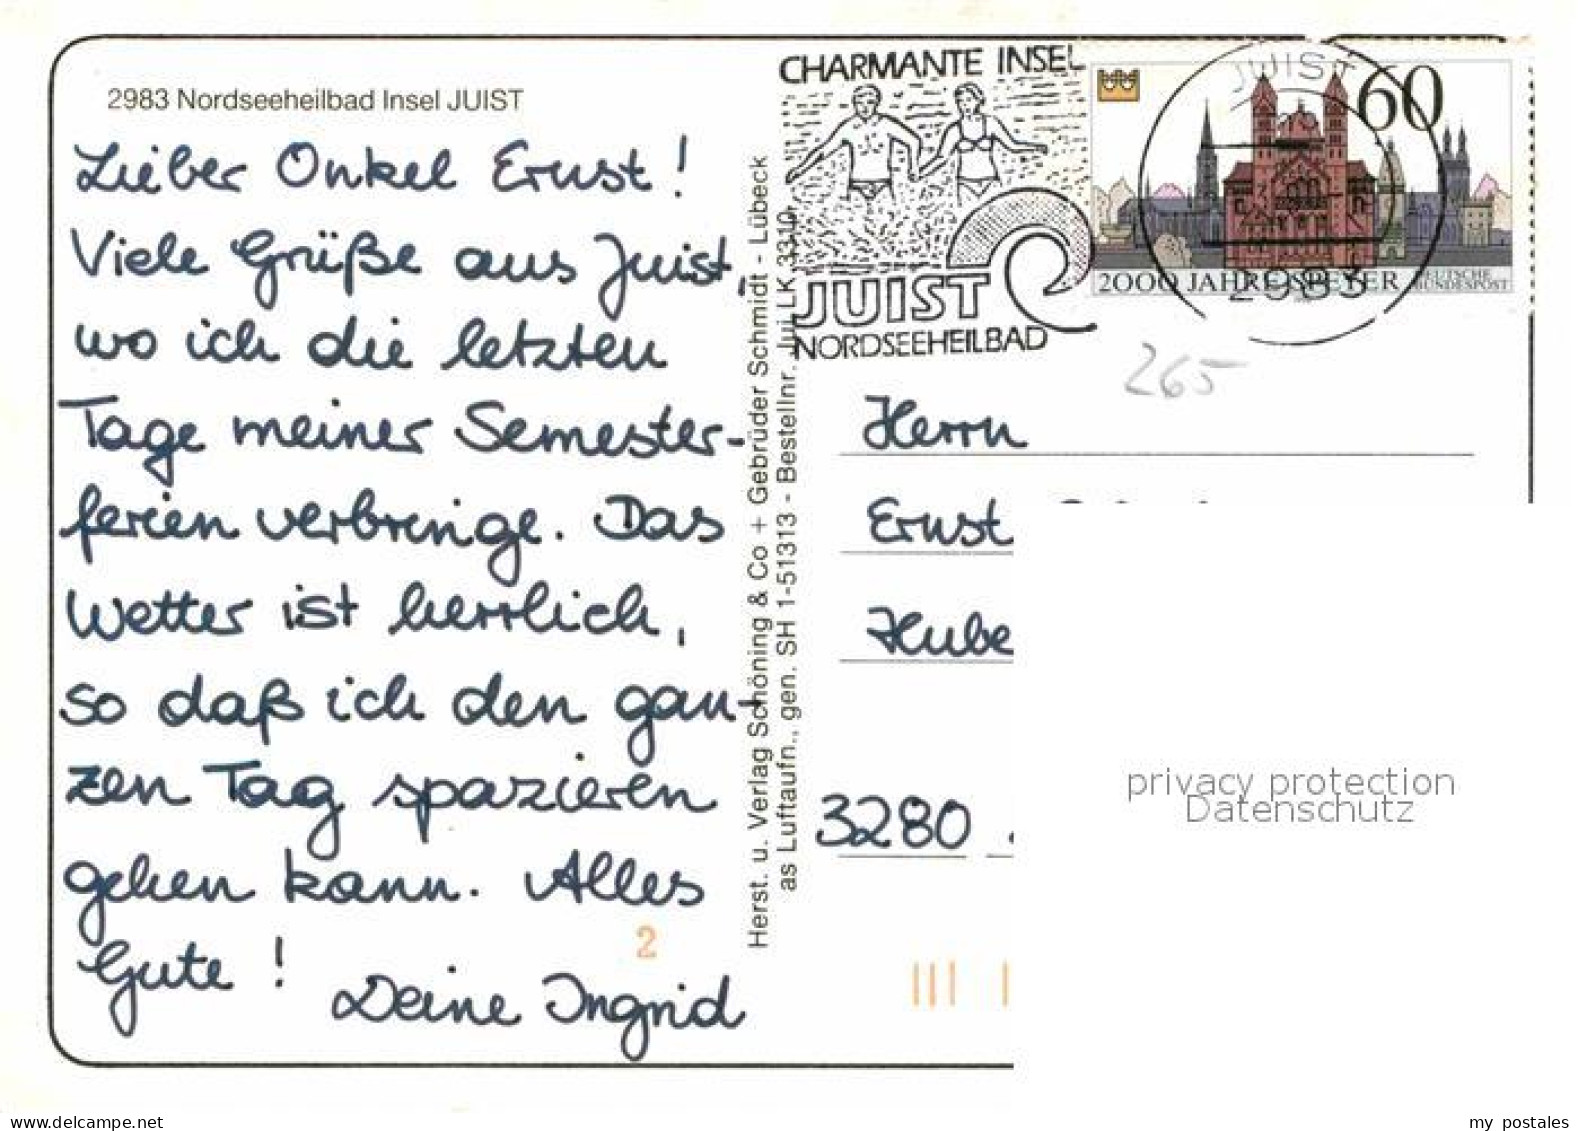 2983 Nordseeheilbad Insel JUIST
Lieber Onkel Ernst!
Viele Grüße aus Juist,
wo ich die letzten
Tage meiner Semester-
ferien verbringe. Das
Wetter ist herrlich,
so daß ich den gan-
zen Tag spazieren
gehen kann. Alles
Gute!
Deine Ingrid
2
Herst. u. Verlag Schöning & Co + Gebrüder Schmidt - Lübeck
as Luftaufn., gen. SH 1-51313 - Bestellnr. Jui LK 3310
CHARMANTE INSEL
JUIST
NORDSEEHEILBAD
JUIST
2983
60
2000 JAHRE SPEYER
DEUTSCHE
BUNDESPOST
265
Herrn
Ernst
Hube
3280
privacy protection
Datenschutz
my postales